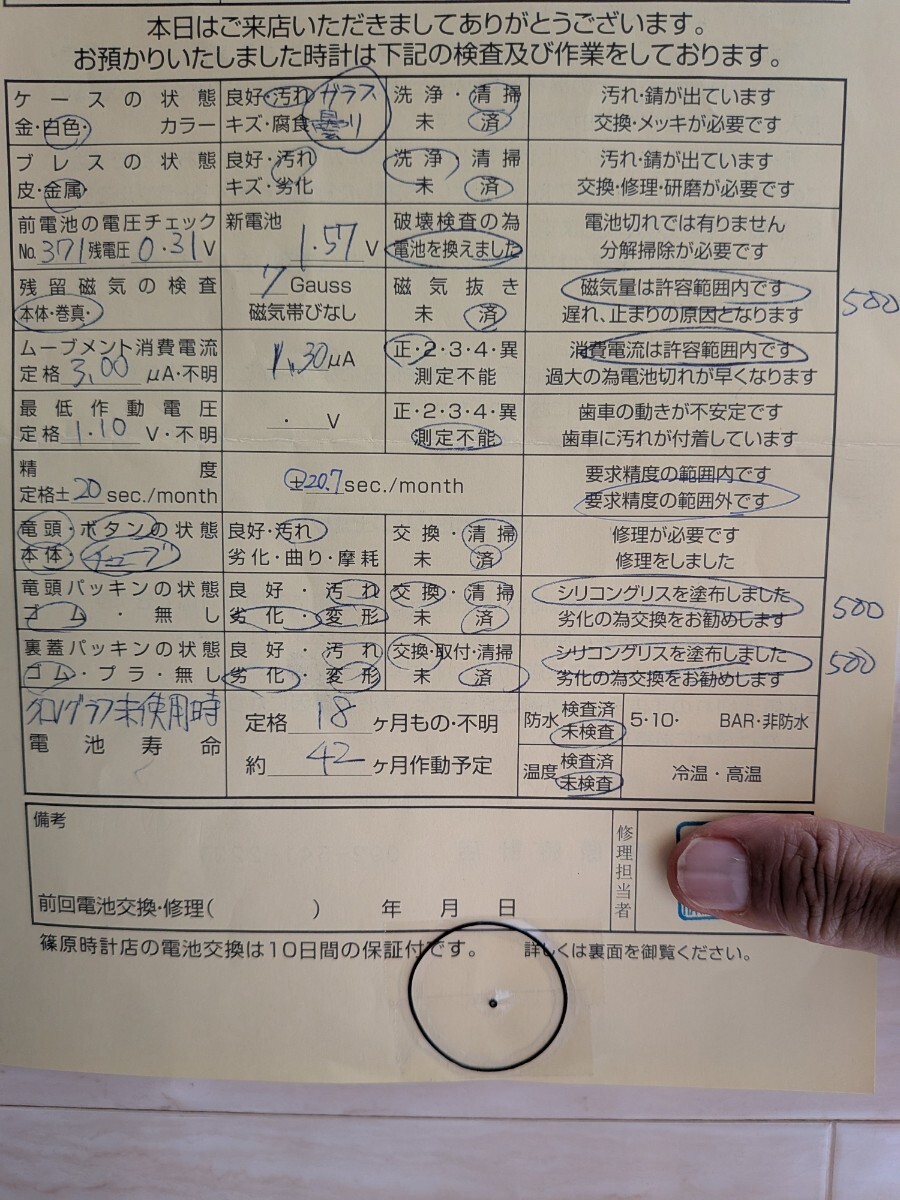 本日はご来店いただきましてありがとうございます。
お預かりいたしました時計は下記の検査及び作業をしております。
ケースの状態 良好・汚れ ガラス 洗浄・清掃 汚れ・錆が出ています
金・白色・ カラー キズ・腐食 曇り 未 済 交換・メッキが必要です
ブレスの状態 良好・汚れ 洗浄・清掃 汚れ・錆が出ています
皮・金属 キズ・劣化 未 済 交換・修理・研磨が必要です
前電池の電圧チェック 新電池 破壊検査の為 電池切れでは有りません
No.371残電圧0.31V 1.57V 電池を換えました 分解掃除が必要です
残留磁気の検査 7 Gauss 磁気抜き 磁気量は許容範囲内です 500
本体・巻真・ 磁気帯びなし 未 済 遅れ、止まりの原因となります
ムーブメント消費電流 1.30μA 正・2・3・4・異 消費電流は許容範囲内です
定格3.00μA・不明 測定不能 過大の為電池切れが早くなります
最低作動電圧 ・ V 正・2・3・4・異 歯車の動きが不安定です
定格1.10V・不明 測定不能 歯車に汚れが付着しています
精度 ±20.7sec./month 要求精度の範囲内です
定格±20sec./month 要求精度の範囲外です
竜頭・ボタンの状態 良好・汚れ 交換・清掃 修理が必要です
本体・チューブ 劣化・曲り・摩耗 未 済 修理をしました
竜頭パッキンの状態 良好・汚れ 交換・清掃 シリコングリスを塗布しました 500
ゴム・無し 劣化・変形 未 済 劣化の為交換をお勧めします
裏蓋パッキンの状態 良好・汚れ 交換・取付・清掃 シリコングリスを塗布しました 500
ゴム・プラ・無し 劣化・変形 未 済 劣化の為交換をお勧めします
クログラフ未使用時 定格18ヶ月もの・不明 防水 検査済 未検査 5・10・ BAR・非防水
電池寿命 約42ヶ月作動予定 温度 検査済 未検査 冷温・高温
備考 修理担当者
前回電池交換・修理( ) 年 月 日
篠原時計店の電池交換は10日間の保証付です。 詳しくは裏面を御覧ください。